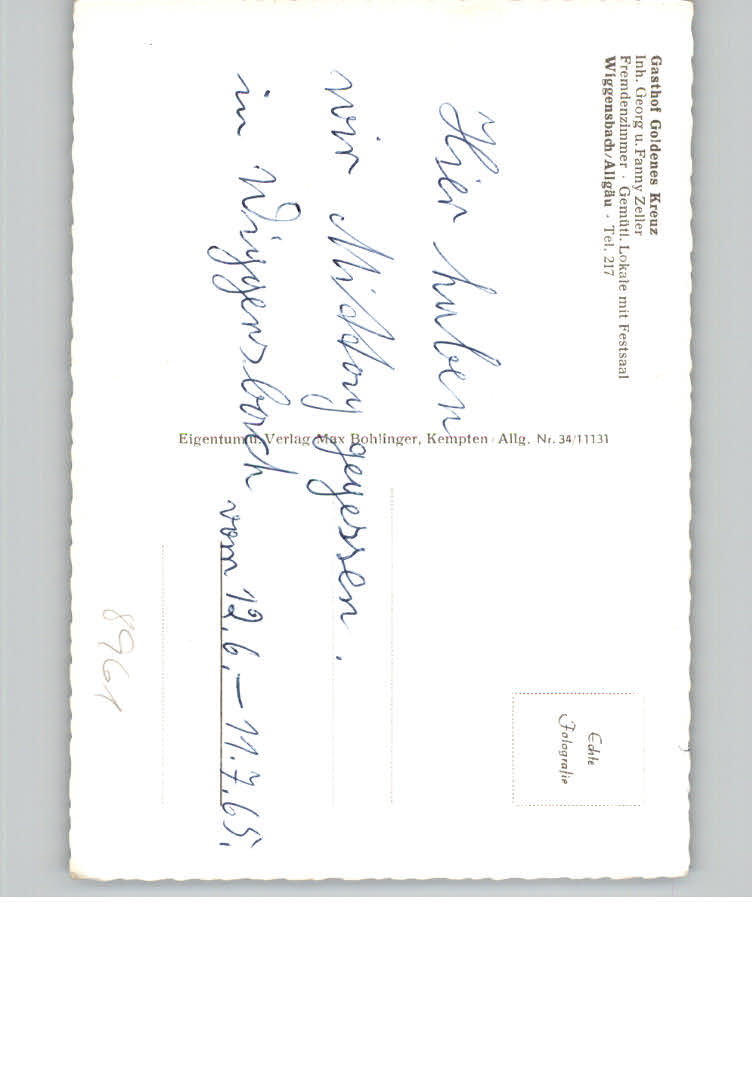 Gasthof Goldenes Kreuz
Inh. Georg u. Fanny Zeller
Fremdenzimmer · Gemütl. Lokale mit Festsaal
Wiggensbach/Allgäu · Tel. 217
Hier haben
wir Mittag gegessen.
in Wiggensbach vom 12.6.–11.7.65.
Eigentum u. Verlag Max Bohlinger, Kempten Allg. Nr. 34/11131
Echte
Fotografie
8961